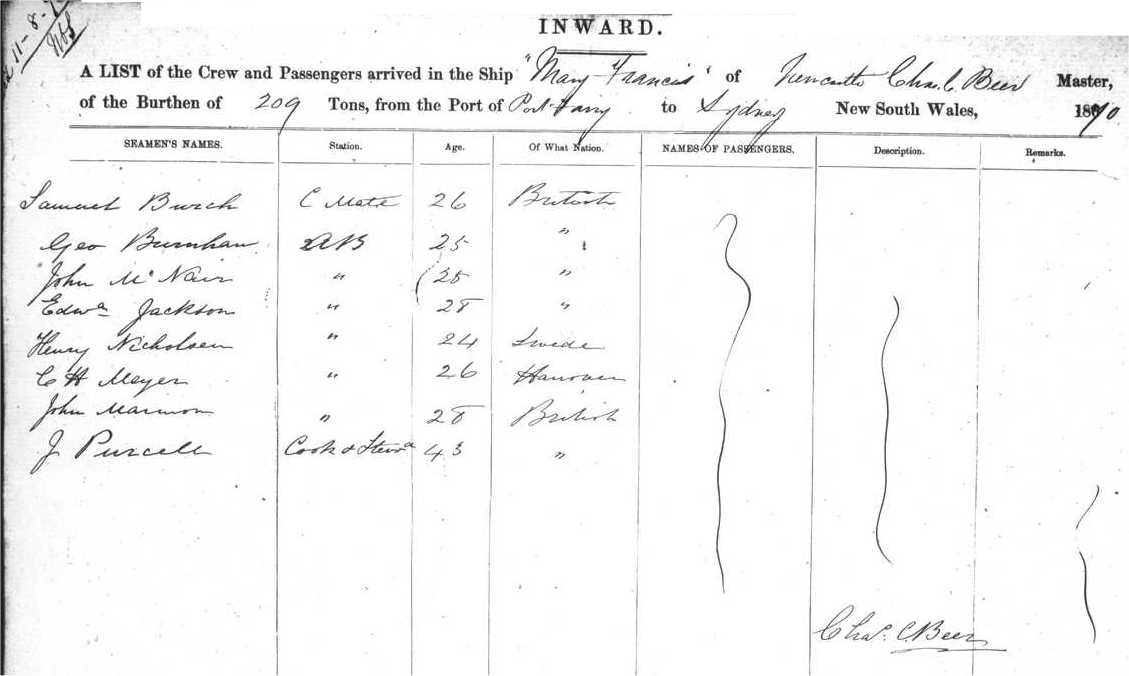 11-8-
INWARD.
A LIST of the Crew and Passengers arrived in the Ship "Mary Francis" of Newcastle Chas. C. Beer Master,
of the Burthen of 209 Tons, from the Port of Port Fairy to Sydney New South Wales, 1870.
SEAMEN'S NAMES. Station. Age. Of What Nation. NAMES OF PASSENGERS. Description. Remarks.
Samuel Burch C Mate 26 British
Geo Burnham AB 25 "
John McNair " 25 "
Edwd Jackson " 28 "
Henry Nicholsen " 24 Swede
C H Meyer " 26 Hanover
John Marmon " 28 British
J Purcell Cook & Stewd 43 "
Chas. C Beer